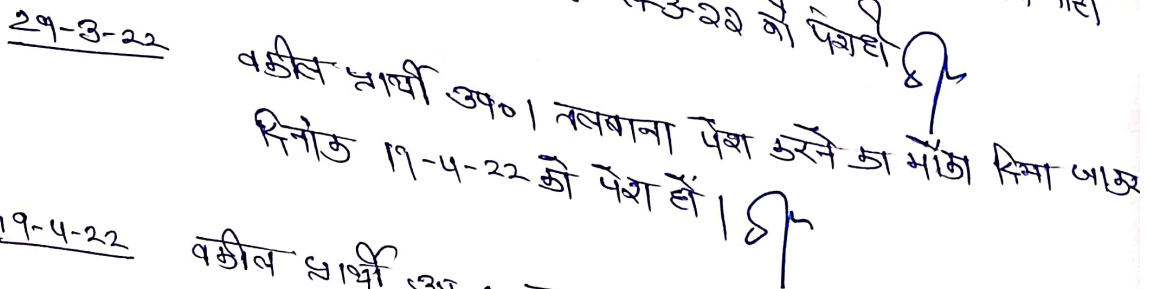 3-22 को पेश हो
29-3-22 वकील प्रार्थी उप०। तलबाना पेश करने का मौका दिया जाकर
दिनांक 19-4-22 को पेश हों।
19-4-22 वकील प्रार्थी